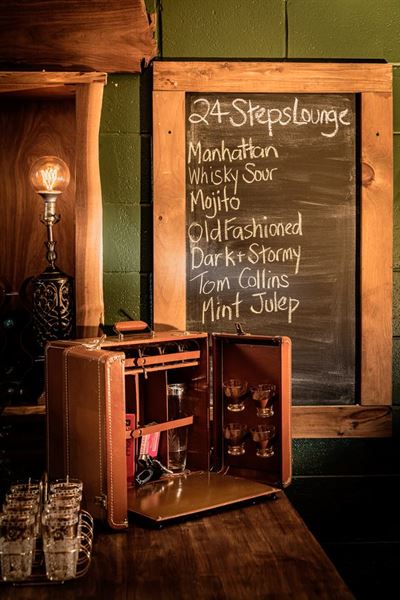 24 Steps Lounge
Manhattan
Whisky Sour
Mojito
Old Fashioned
Dark + Stormy
Tom Collins
Mint Julep